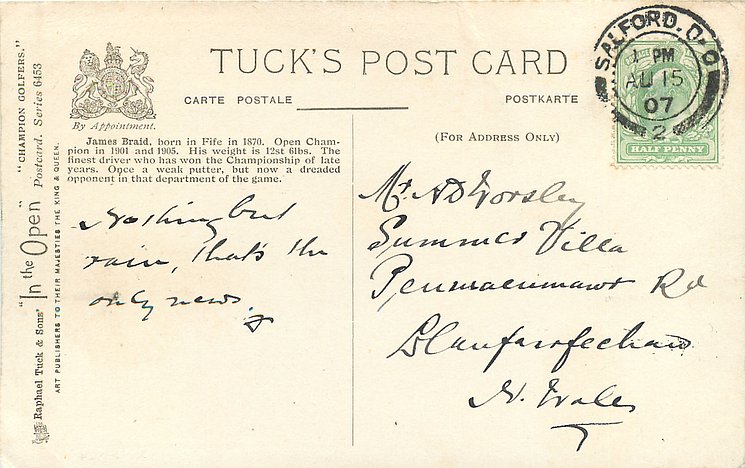 TUCK'S POST CARD
CARTE POSTALE
POSTKARTE
By Appointment.
(FOR ADDRESS ONLY)
James Braid, born in Fife in 1870. Open Cham-
pion in 1901 and 1905. His weight is 12st 6lbs. The
finest driver who has won the Championship of late
years. Once a weak putter, but now a dreaded
opponent in that department of the game.
Nothing but
rain, that's the
only news.
Mr A D Worsley
Summer Villa
Penmaenmawr Rd
Llanfairfechan
N. Wales
SALFORD. D.O
1 PM
AU 15
07
2
HALF PENNY
Raphael Tuck & Sons' "In the Open" Postcard. Series 6453
"CHAMPION GOLFERS."
ART PUBLISHERS TO THEIR MAJESTIES THE KING & QUEEN.